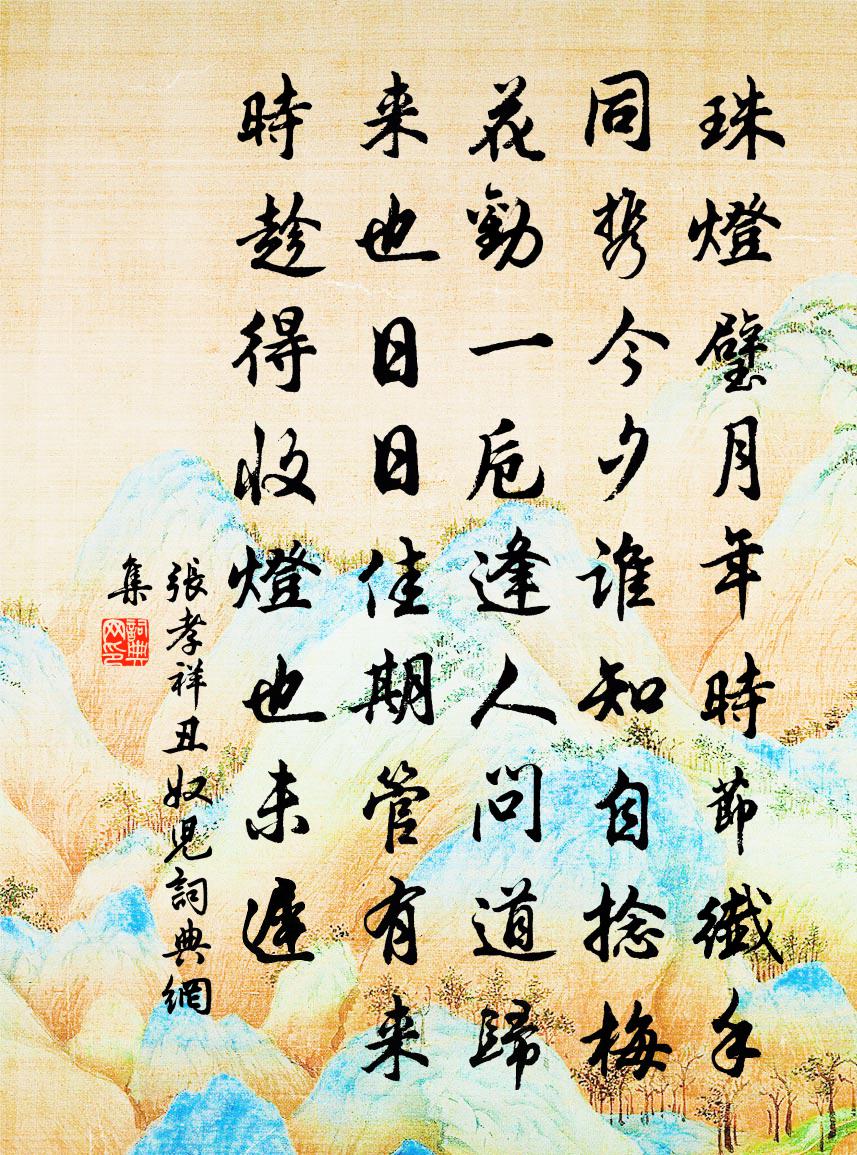 珠燈璧月年時節纖手
同携今夕誰知自捻梅
花勸一卮逢人問道歸
来也日日佳期管有来
時趁得收燈也未遲
張孝祥丑奴兒詞典網
集
詞典網印